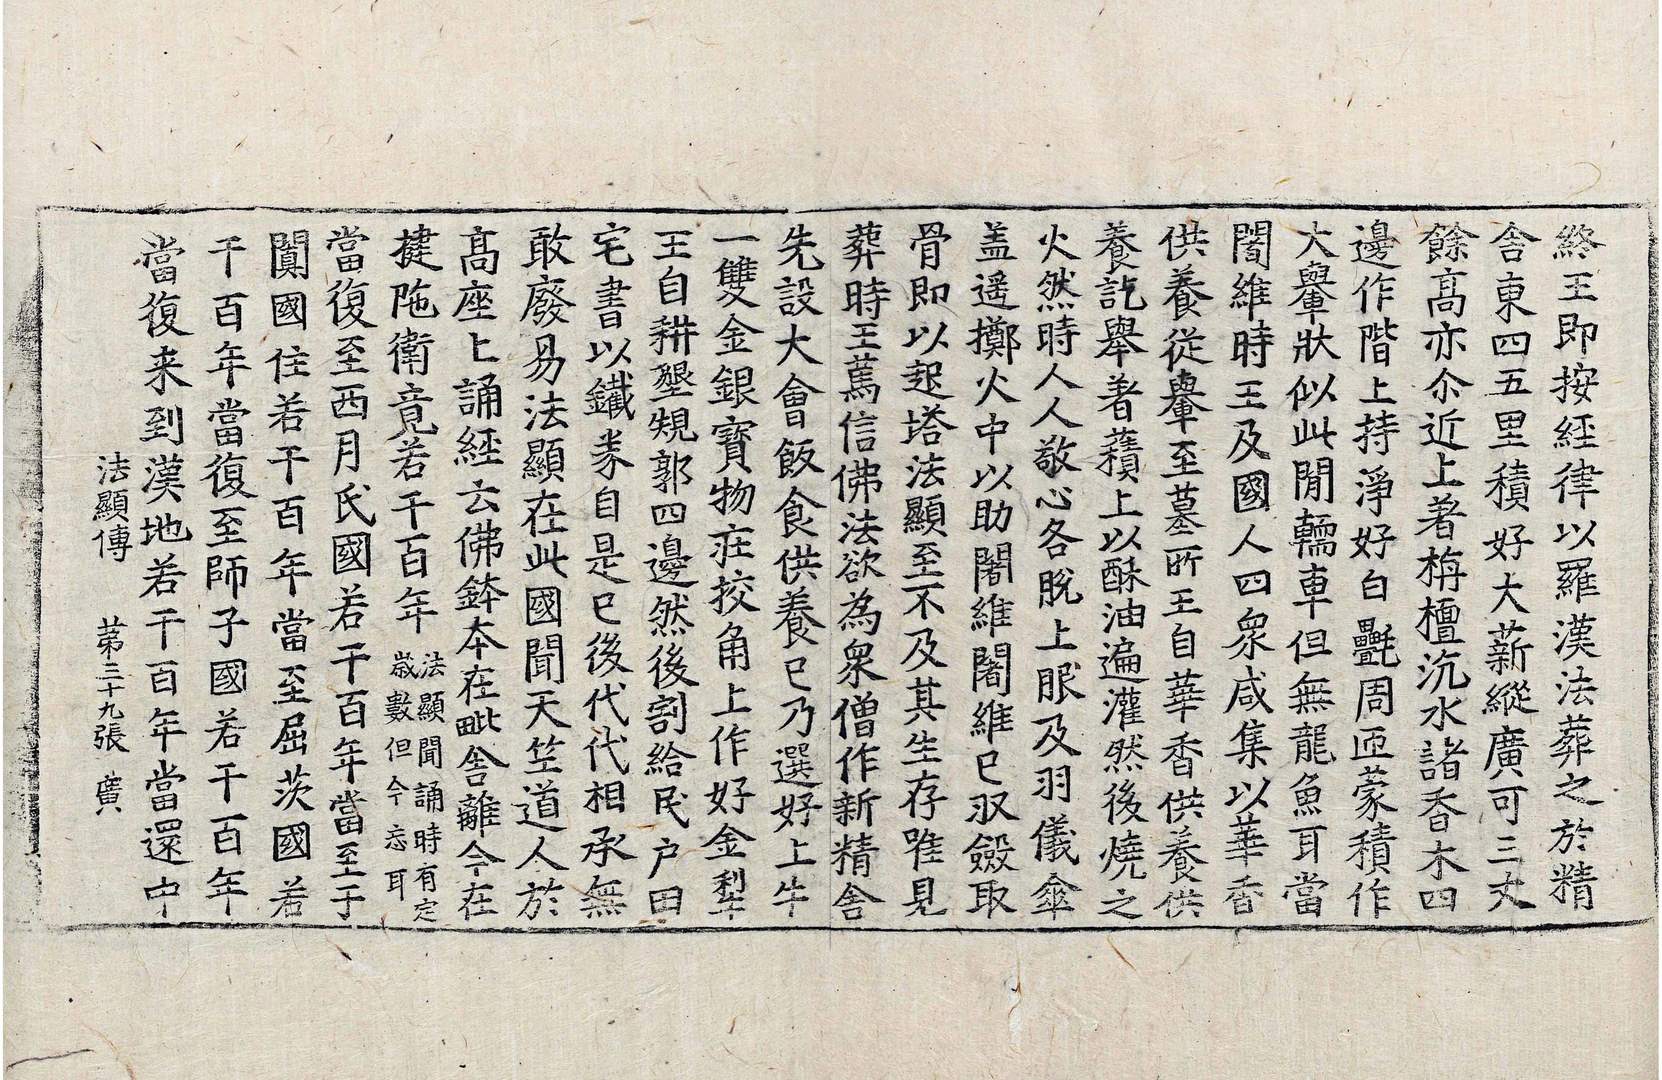 終王即按經律以羅漢法葬之於精
舍東四五里積好大薪縱廣可三丈
餘高亦尒近上著栴檀沉水諸香木四
邊作階上持淨好白㲲周匝蒙積作
大轝狀似此閒轜車但無龍魚耳當
闍維時王及國人四衆咸集以華香
供養從轝至墓所王自華香供養供
養訖舉著𧂐上以酥油遍灌然後燒之
火然時人人敬心各脫上服及羽儀傘
盖遥擲火中以助闍維闍維已収斂取
骨即以起塔法顯至不及其生存唯見
葬時王篤信佛法欲為衆僧作新精舍
先設大會飯食供養已乃選好上牛
一雙金銀寶物莊挍角上作好金利牛
王自耕墾䂓郭四邊然後割給民户田
宅書以鐵券自是已後代代相承無
敢廢易法顯在此國聞天竺道人於
高座上誦經云佛鉢本在毗舍離今在
揵陁衛竟若干百年法顯聞誦時有定歲數但今忘耳
當復至西月氏國若干百年當至于
闐國住若干百年當至屈茨國若
干百年當復至師子國若干百年
當復来到漢地若干百年當還中
法顯傳 苐三十九張 廣